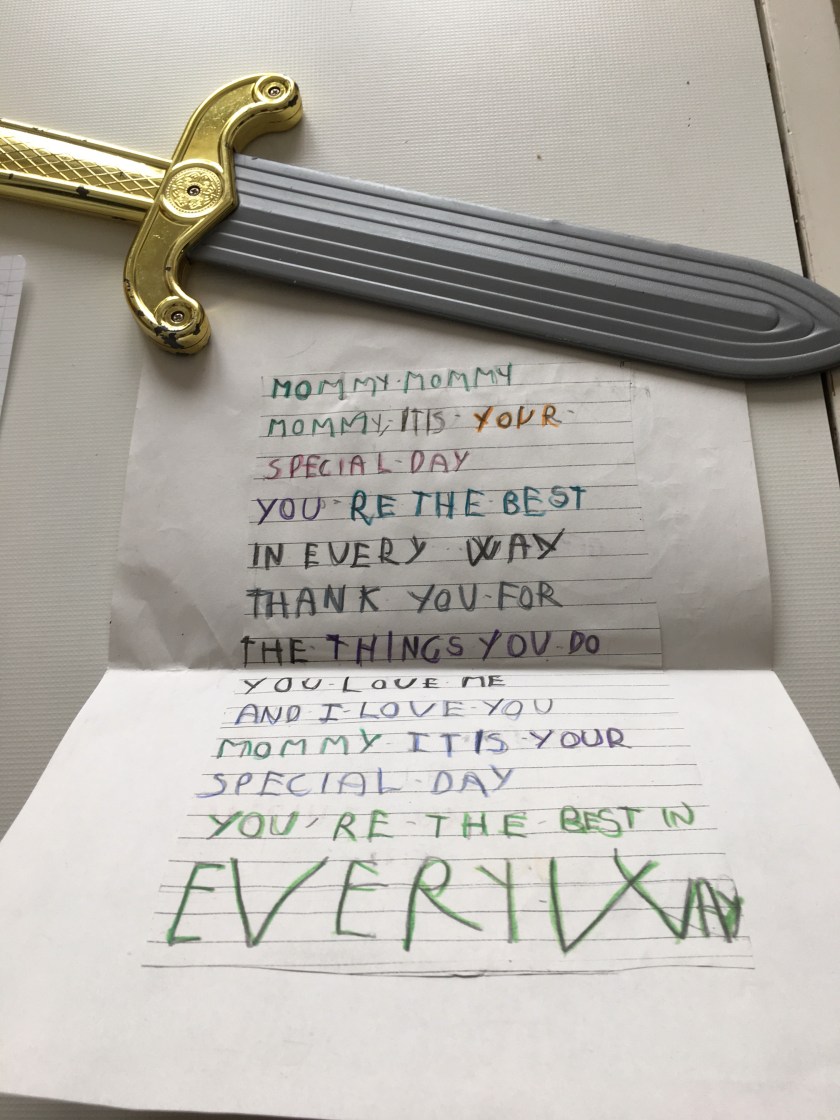 MOMMY-MOMMY
MOMMY, IT IS YOUR
SPECIAL DAY
YOU'RE THE BEST
IN EVERY WAY
THANK YOU FOR
THE THINGS YOU DO
YOU LOVE ME
AND I LOVE YOU
MOMMY IT IS YOUR
SPECIAL DAY
YOU'RE THE BEST IN
EVERY WAY